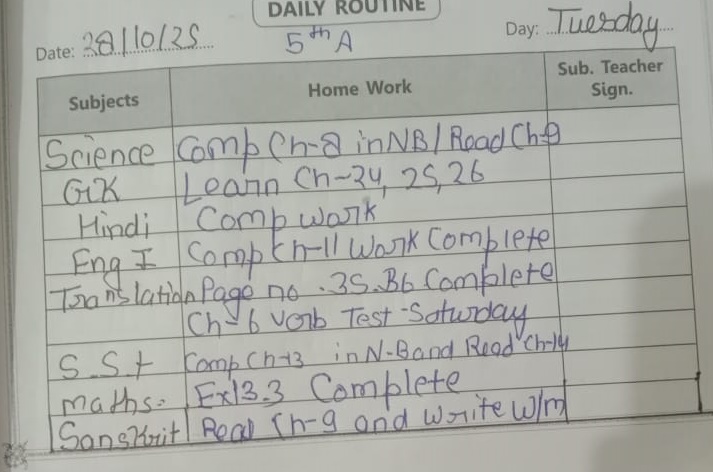 DAILY ROUTINE
Date: 28/10/25 5th A Day: Tuesday
Subjects Home Work Sub. Teacher Sign.
Science Comp Ch-8 in NB / Read Ch-9
G.K Learn Ch-24, 25, 26
Hindi Comp work
Eng I Comp Ch-11 Work Complete
Translation Page no. 35.36 Complete
Ch-6 verb Test - Saturday
S.S.t Comp Ch-13 in N-B and Read Ch-14
maths: Ex13.3 Complete
Sanskrit Read Ch-9 and write w/m